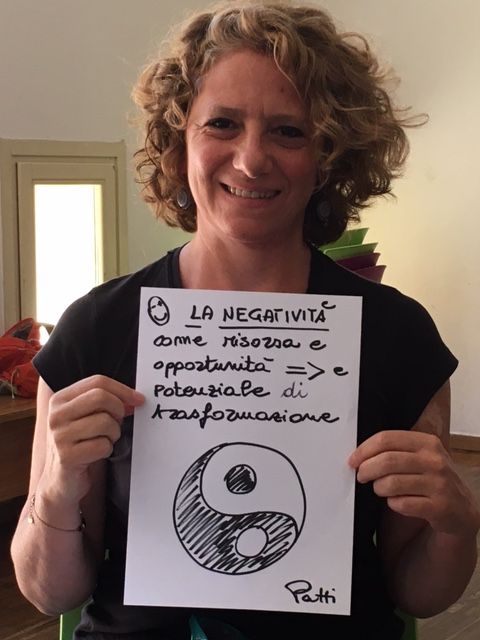 LA NEGATIVITÀ
come risorsa e
opportunità => e
potenziale di
trasformazione
Patti